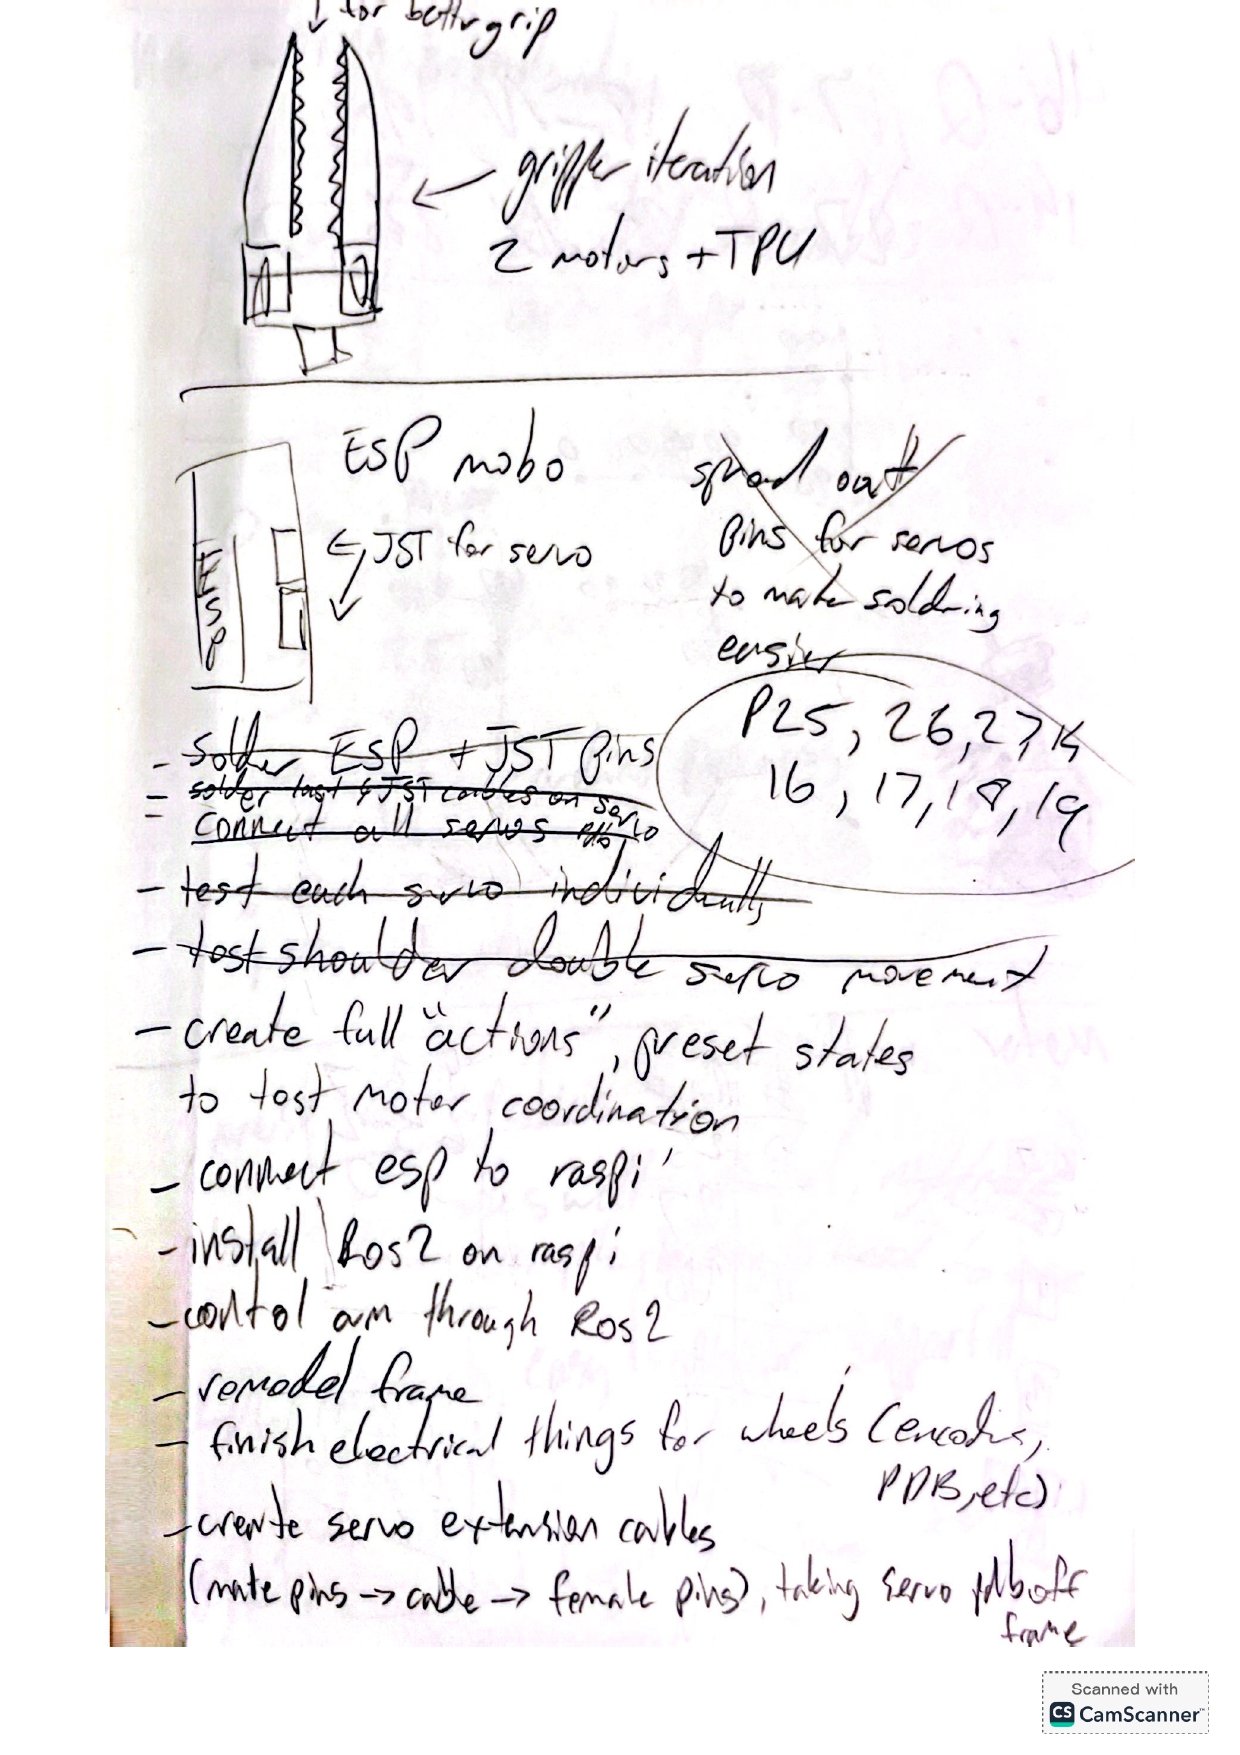 for better grip
gripper iteration
2 motors + TPU
ESP mobo
JST for servo
ESP
spread out
pins for servos
to make soldring
easier
P25, 26, 27, 14
16, 17, 18, 19
- solder ESP + JST pins
- solder last JST cables on servo
- connect all servos
- test each servo individually
- test shoulder double servo movement
- create full "actions", preset states
to test motor coordination
- connect esp to raspi
- install Ros2 on raspi
- control arm through Ros2
- remodel frame
- finish electrical things for wheels (encoders,
PDB, etc)
- create servo extension cables
(male pins → cable → female pins), taking servo pdb off
frame
Scanned with
CS CamScanner